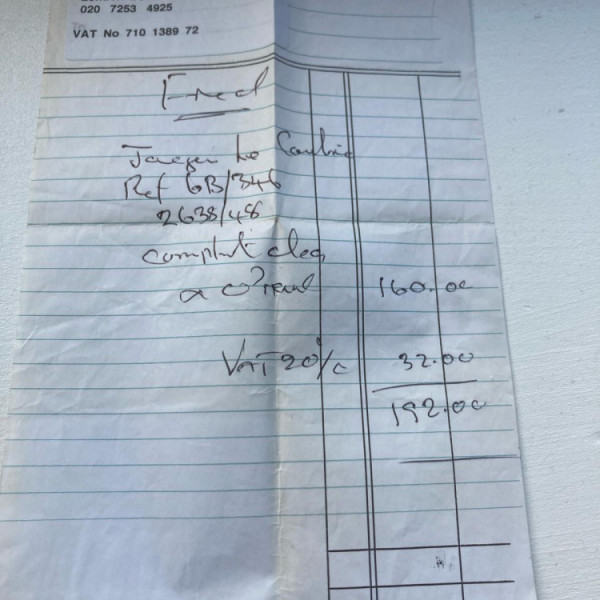 020 7253 4925
VAT No 710 1389 72
Fred
Jaeger Le Coultre
Ref 6B/346
2638/48
complete clean
160.00
VAT 20% 32.00
192.00